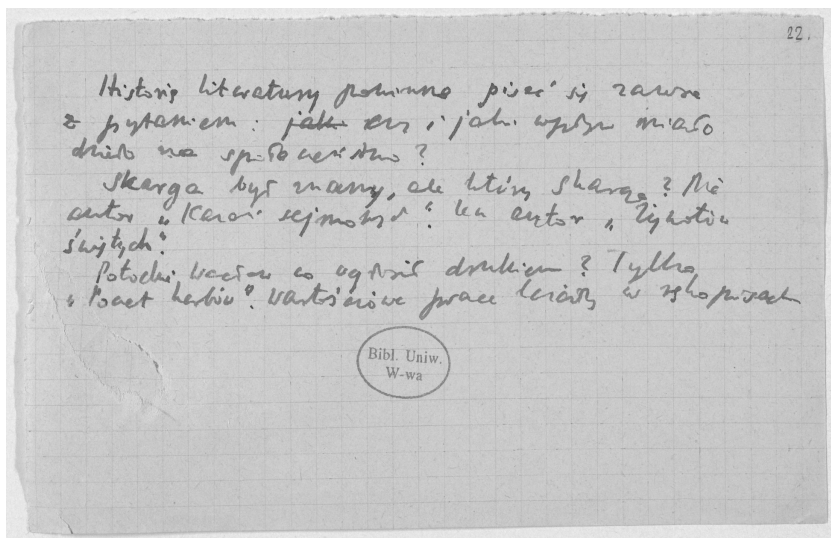 22.
Historię literatury powinno pisać się zawsze
z pytaniem: jaki czy i jaki wpływ miało
dzieło na społeczeństwo?
Skarga był znany, ale który Skarga? Nie
autor „Kazań sejmowych". Ten autor „Żywotów
świętych".
Potocki Wacław co ogłosił drukiem? Tylko
„Poczet herbów". Wartościowe prace leżały w rękopisach
Bibl. Uniw.
W-wa